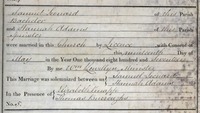 Samuel Leonard of this Parish
Bachelor
and Hannah Adams of this Parish
Spinster
were married in this Church by Licence with Consent of
this nineteenth Day of
May in the Year One thousand eight hundred and seventeen
By me Llewellyn Minister
This Marriage was solemnized between us Samuel Leonard
Hannah Adams
In the Presence of Elizabeth
Thomas Burroughs
No.